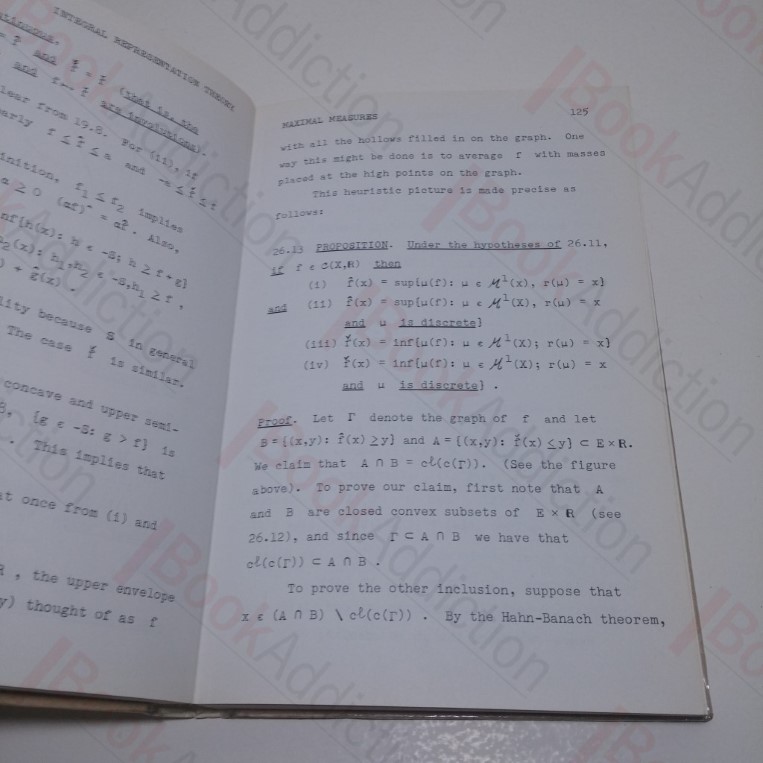 INTEGRAL REPRESENTATION THEORY
(that is, the
are involutions).
lear from 19.8. For (ii), if
early f ≤ f̂ ≤ a and
inition, f₁ ≤ f₂ implies
α ≥ 0 (αf)^ = αf̂. Also,
nf{h(x): h ∈ -S; h ≥ f+g}
h₂(x): h₁,h₂ ∈ -S, h₁ ≥ f,
) + ĝ(x).
lity because S in general
The case f̌ is similar.
concave and upper semi-
S, {g ∈ -S: g > f} is
. This implies that
at once from (i) and
R , the upper envelope
y) thought of as f
MAXIMAL MEASURES 125
with all the hollows filled in on the graph. One
way this might be done is to average f with masses
placed at the high points on the graph.
This heuristic picture is made precise as
follows:
26.13 PROPOSITION. Under the hypotheses of 26.11,
if f ∈ C(X,R) then
(i) f̂(x) = sup{μ(f): μ ∈ M¹(X), r(μ) = x}
and (ii) f̂(x) = sup{μ(f): μ ∈ M¹(X), r(μ) = x
and μ is discrete}
(iii) f̌(x) = inf{μ(f): μ ∈ M¹(X); r(μ) = x}
(iv) f̌(x) = inf{μ(f): μ ∈ M¹(X); r(μ) = x
and μ is discrete} .
Proof. Let Γ denote the graph of f and let
B = {(x,y): f̂(x) ≥ y} and A = {(x,y): f̌(x) ≤ y} ⊂ E × R.
We claim that A ∩ B = cℓ(c(Γ)). (See the figure
above). To prove our claim, first note that A
and B are closed convex subsets of E × R (see
26.12), and since Γ ⊂ A ∩ B we have that
cℓ(c(Γ)) ⊂ A ∩ B .
To prove the other inclusion, suppose that
x ∈ (A ∩ B) \ cℓ(c(Γ)) . By the Hahn-Banach theorem,
BookAddiction